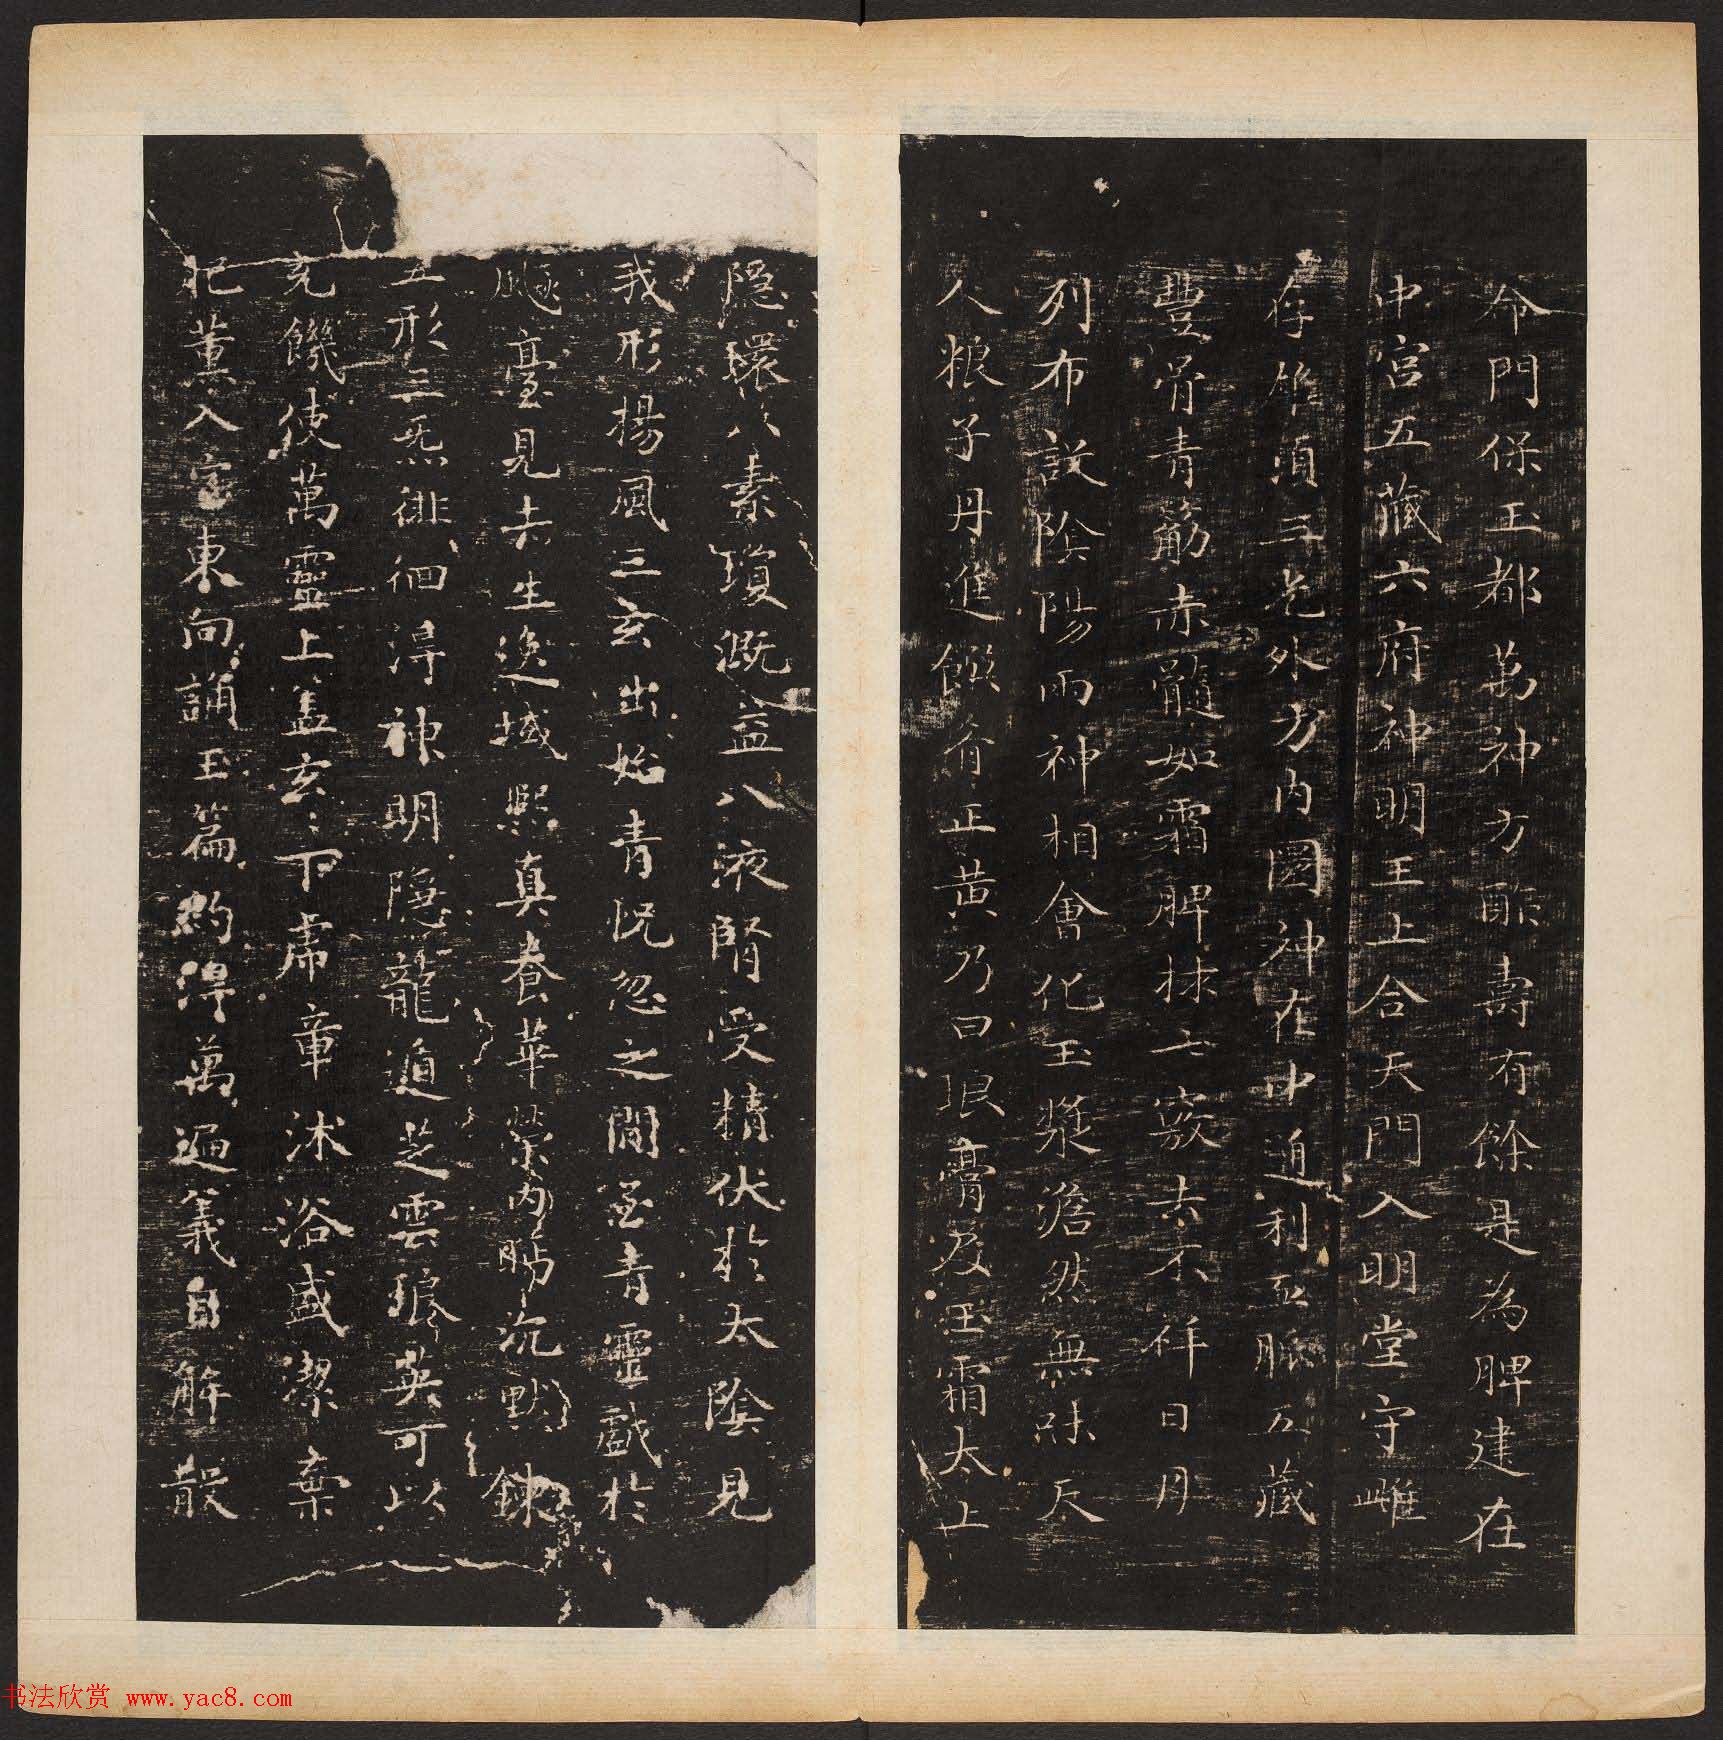 命門保玉都萬神方酢壽有餘是為脾建在
中宮五藏六府神明王上合天門入明堂守雌
存雄頂三光外方內圓神在中通利血脈五藏
豐骨青筋赤髓如霜脾救七竅去不祥日月
列布設陰陽兩神相會化玉漿澹然無味天
人粮子丹進饌肴正黃乃曰琅膏及玉霜太上
隱環八素瓊溉益八液腎受精伏於太陰見
我形揚風三玄出始青恍忽之間至青靈戲於
飈臺見赤生逸域熙真養華榮內盼沉默鍊
五形三炁徘徊得神明隱龍遁芝雲琅英可以
充饑使萬靈上蓋玄〻下虎章沐浴盛潔棄
肥薰入室東向誦玉篇約得萬遍義自解散
书法欣赏 www.yac8.com